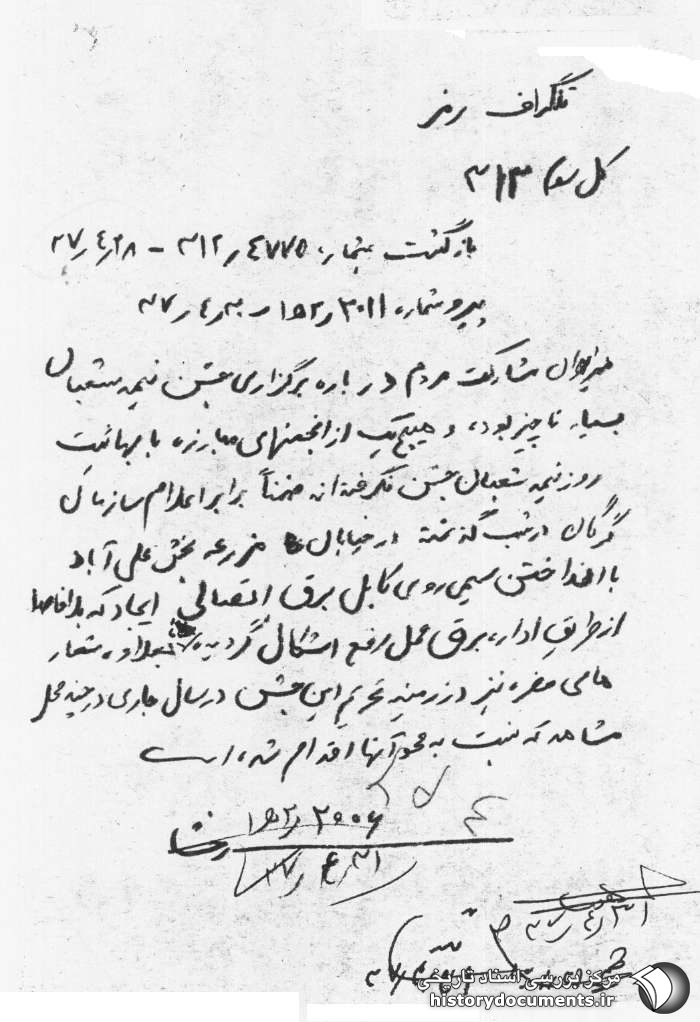 تلگراف رمز
کل سوم ۳۱۳
بازگشت بشماره ۴۷۷۵ ر ۳۱۲ - ۲۸ ر ۴ ر ۳۷
پیرو شماره ۳۰۱۱ ر ۱۵۲ - ۳۰ ر ۴ ر ۳۷
میزان مشارکت مردم در باره برگزاری جشن نیمه شعبان
بسیار ناچیز بوده و هیچیک از انجمنهای مبارزه با بهائیت
روز نیمه شعبان جشن نگرفته‌اند ضمناً برابر اعلام سازمان
گرگان در شب گذشته در خیابان مزرعه بخش علی آباد
با انداختن سیمی روی کابل برق اتصالی ایجاد که بلافاصله
از طریق اداره برق محل رفع اشکال گردیده بعلاوه شعار
هایی مضره نیز در زمینه تحریم این جشن در سال جاری در چند محل
مشاهده که نسبت به محو آنها اقدام شده است
۳۰۰۶ ر ۱۵۲
۳۱ ر ۴ ر ۳۷
۳۱ ر ۴ ر ۳۷
مرکز بررسی اسناد تاریخی
historydocuments.ir